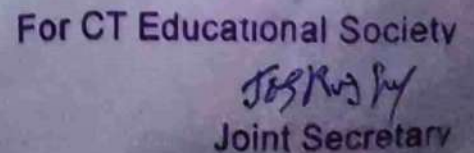 For CT Educational Society
Joint Secretary